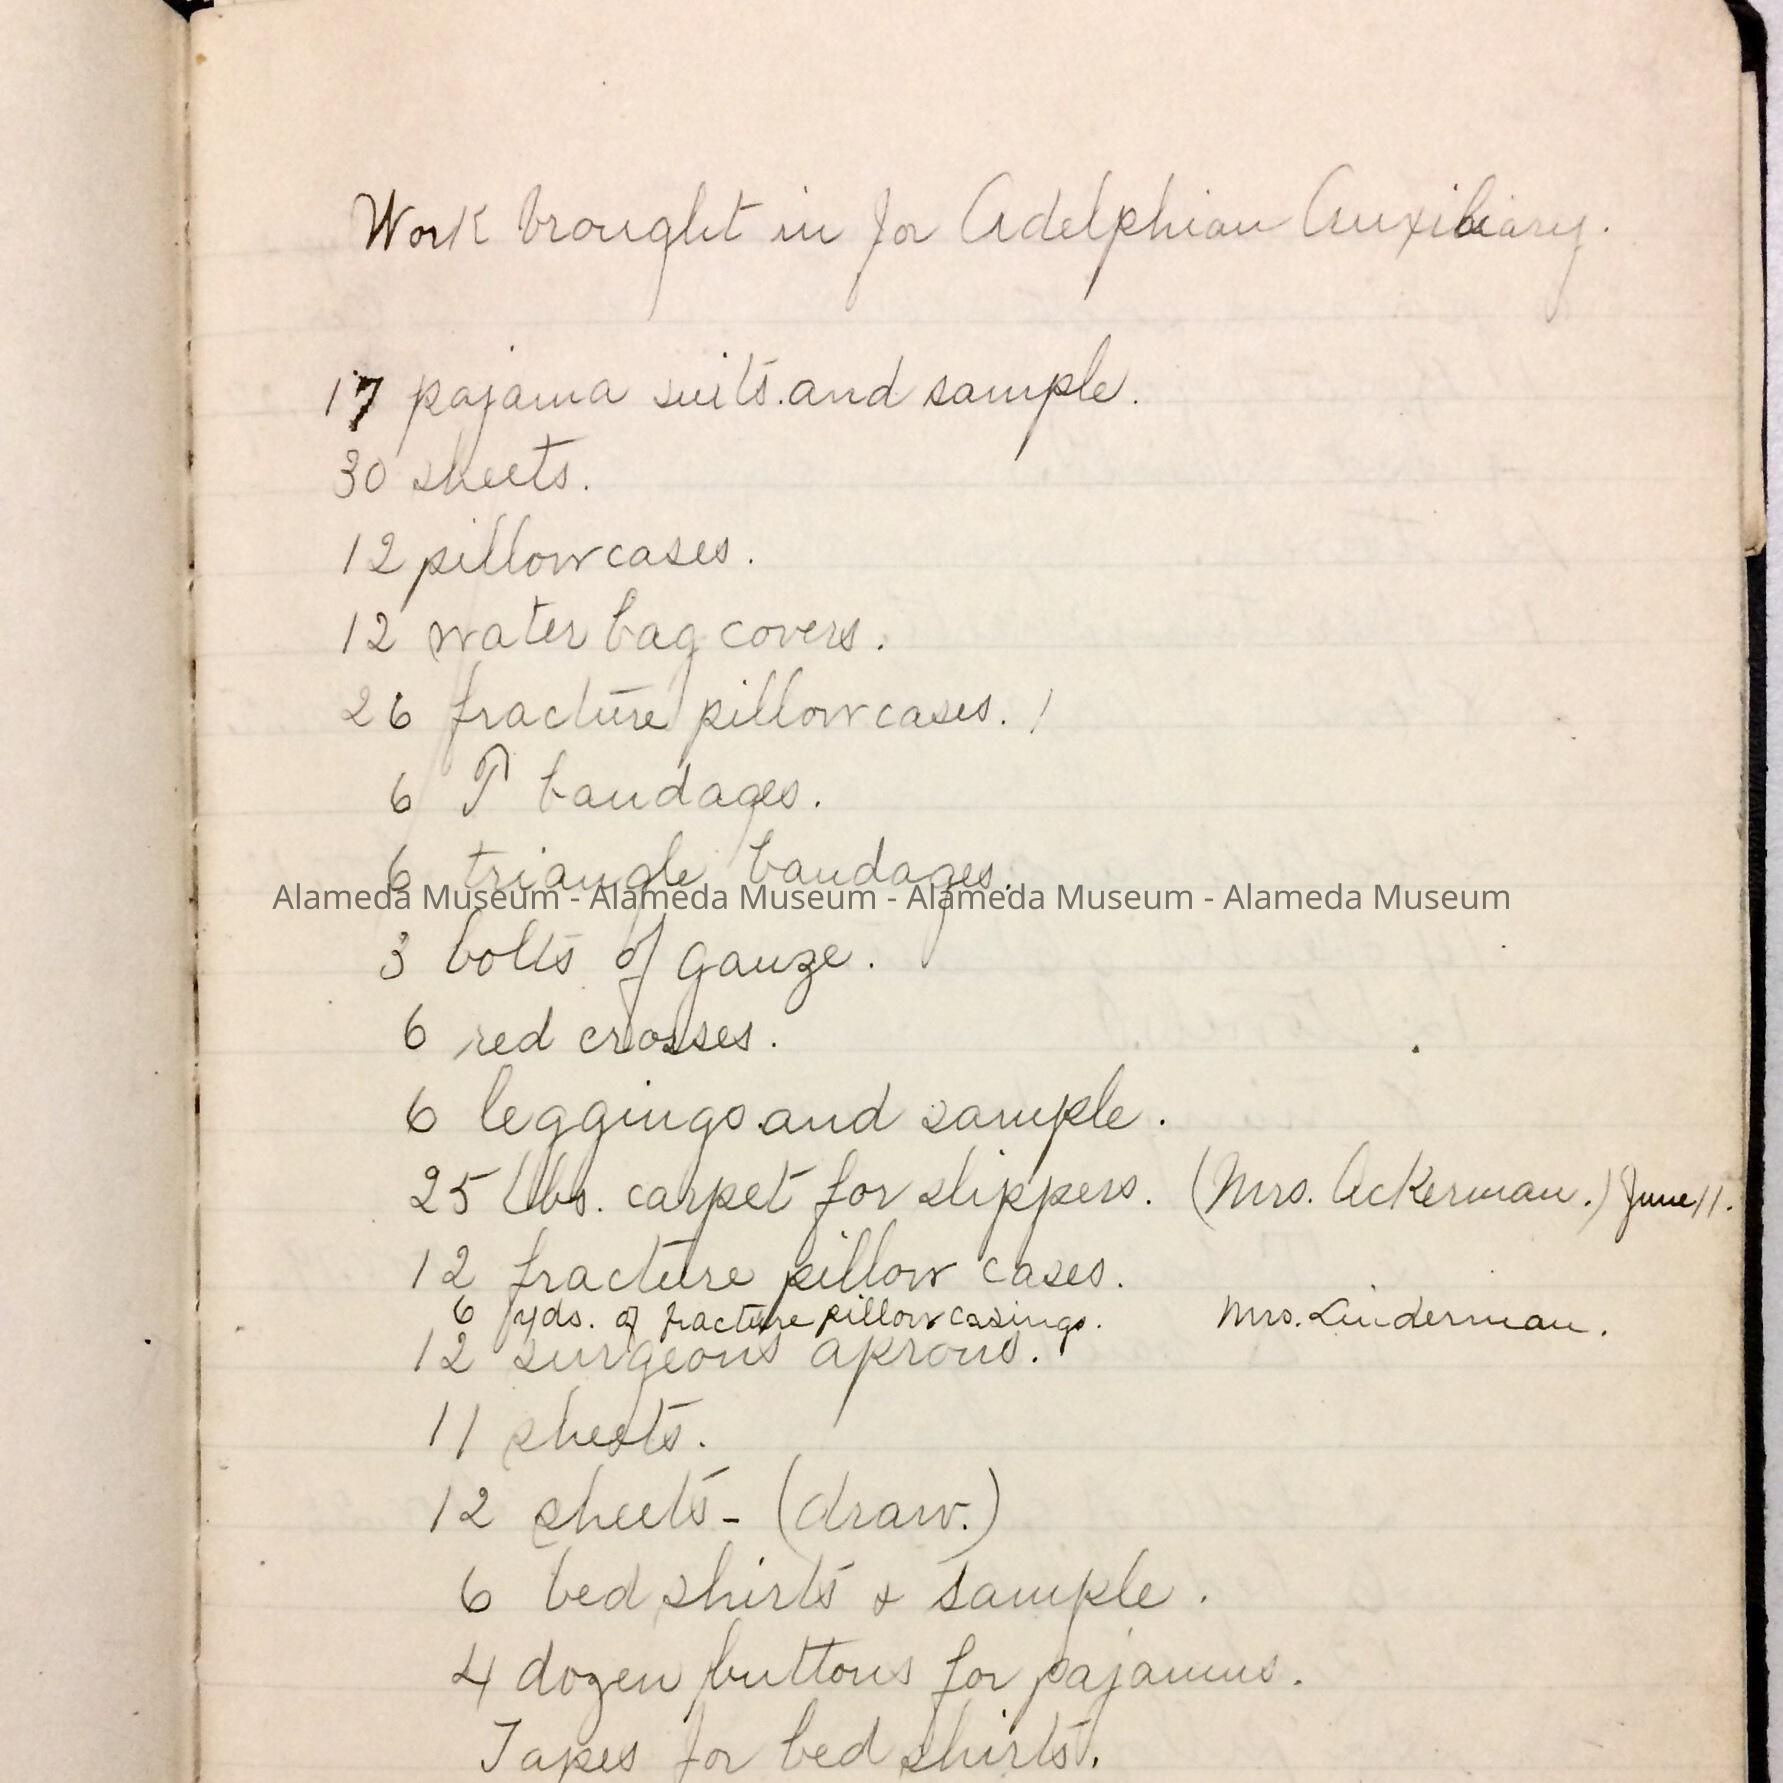 Work brought in for Adelphian Auxiliary.
17 pajama suits and sample.
30 sheets.
12 pillowcases.
12 water bag covers.
26 fracture pillowcases. /
6 T bandages.
6 triangle bandages.
Alameda Museum - Alameda Museum - Alameda Museum - Alameda Museum
3 bolts of gauze.
6 red crosses.
6 leggings and sample.
25 lbs. carpet for slippers. (Mrs. Ackerman.) June 11.
12 fracture pillow cases.
6 yds. of fracture pillowcasings. Mrs. Linderman.
12 surgeons aprons.
11 sheets.
12 sheets - (draw.)
6 bed shirts & sample.
4 dozen buttons for pajamus.
Tapes for bed shirts.